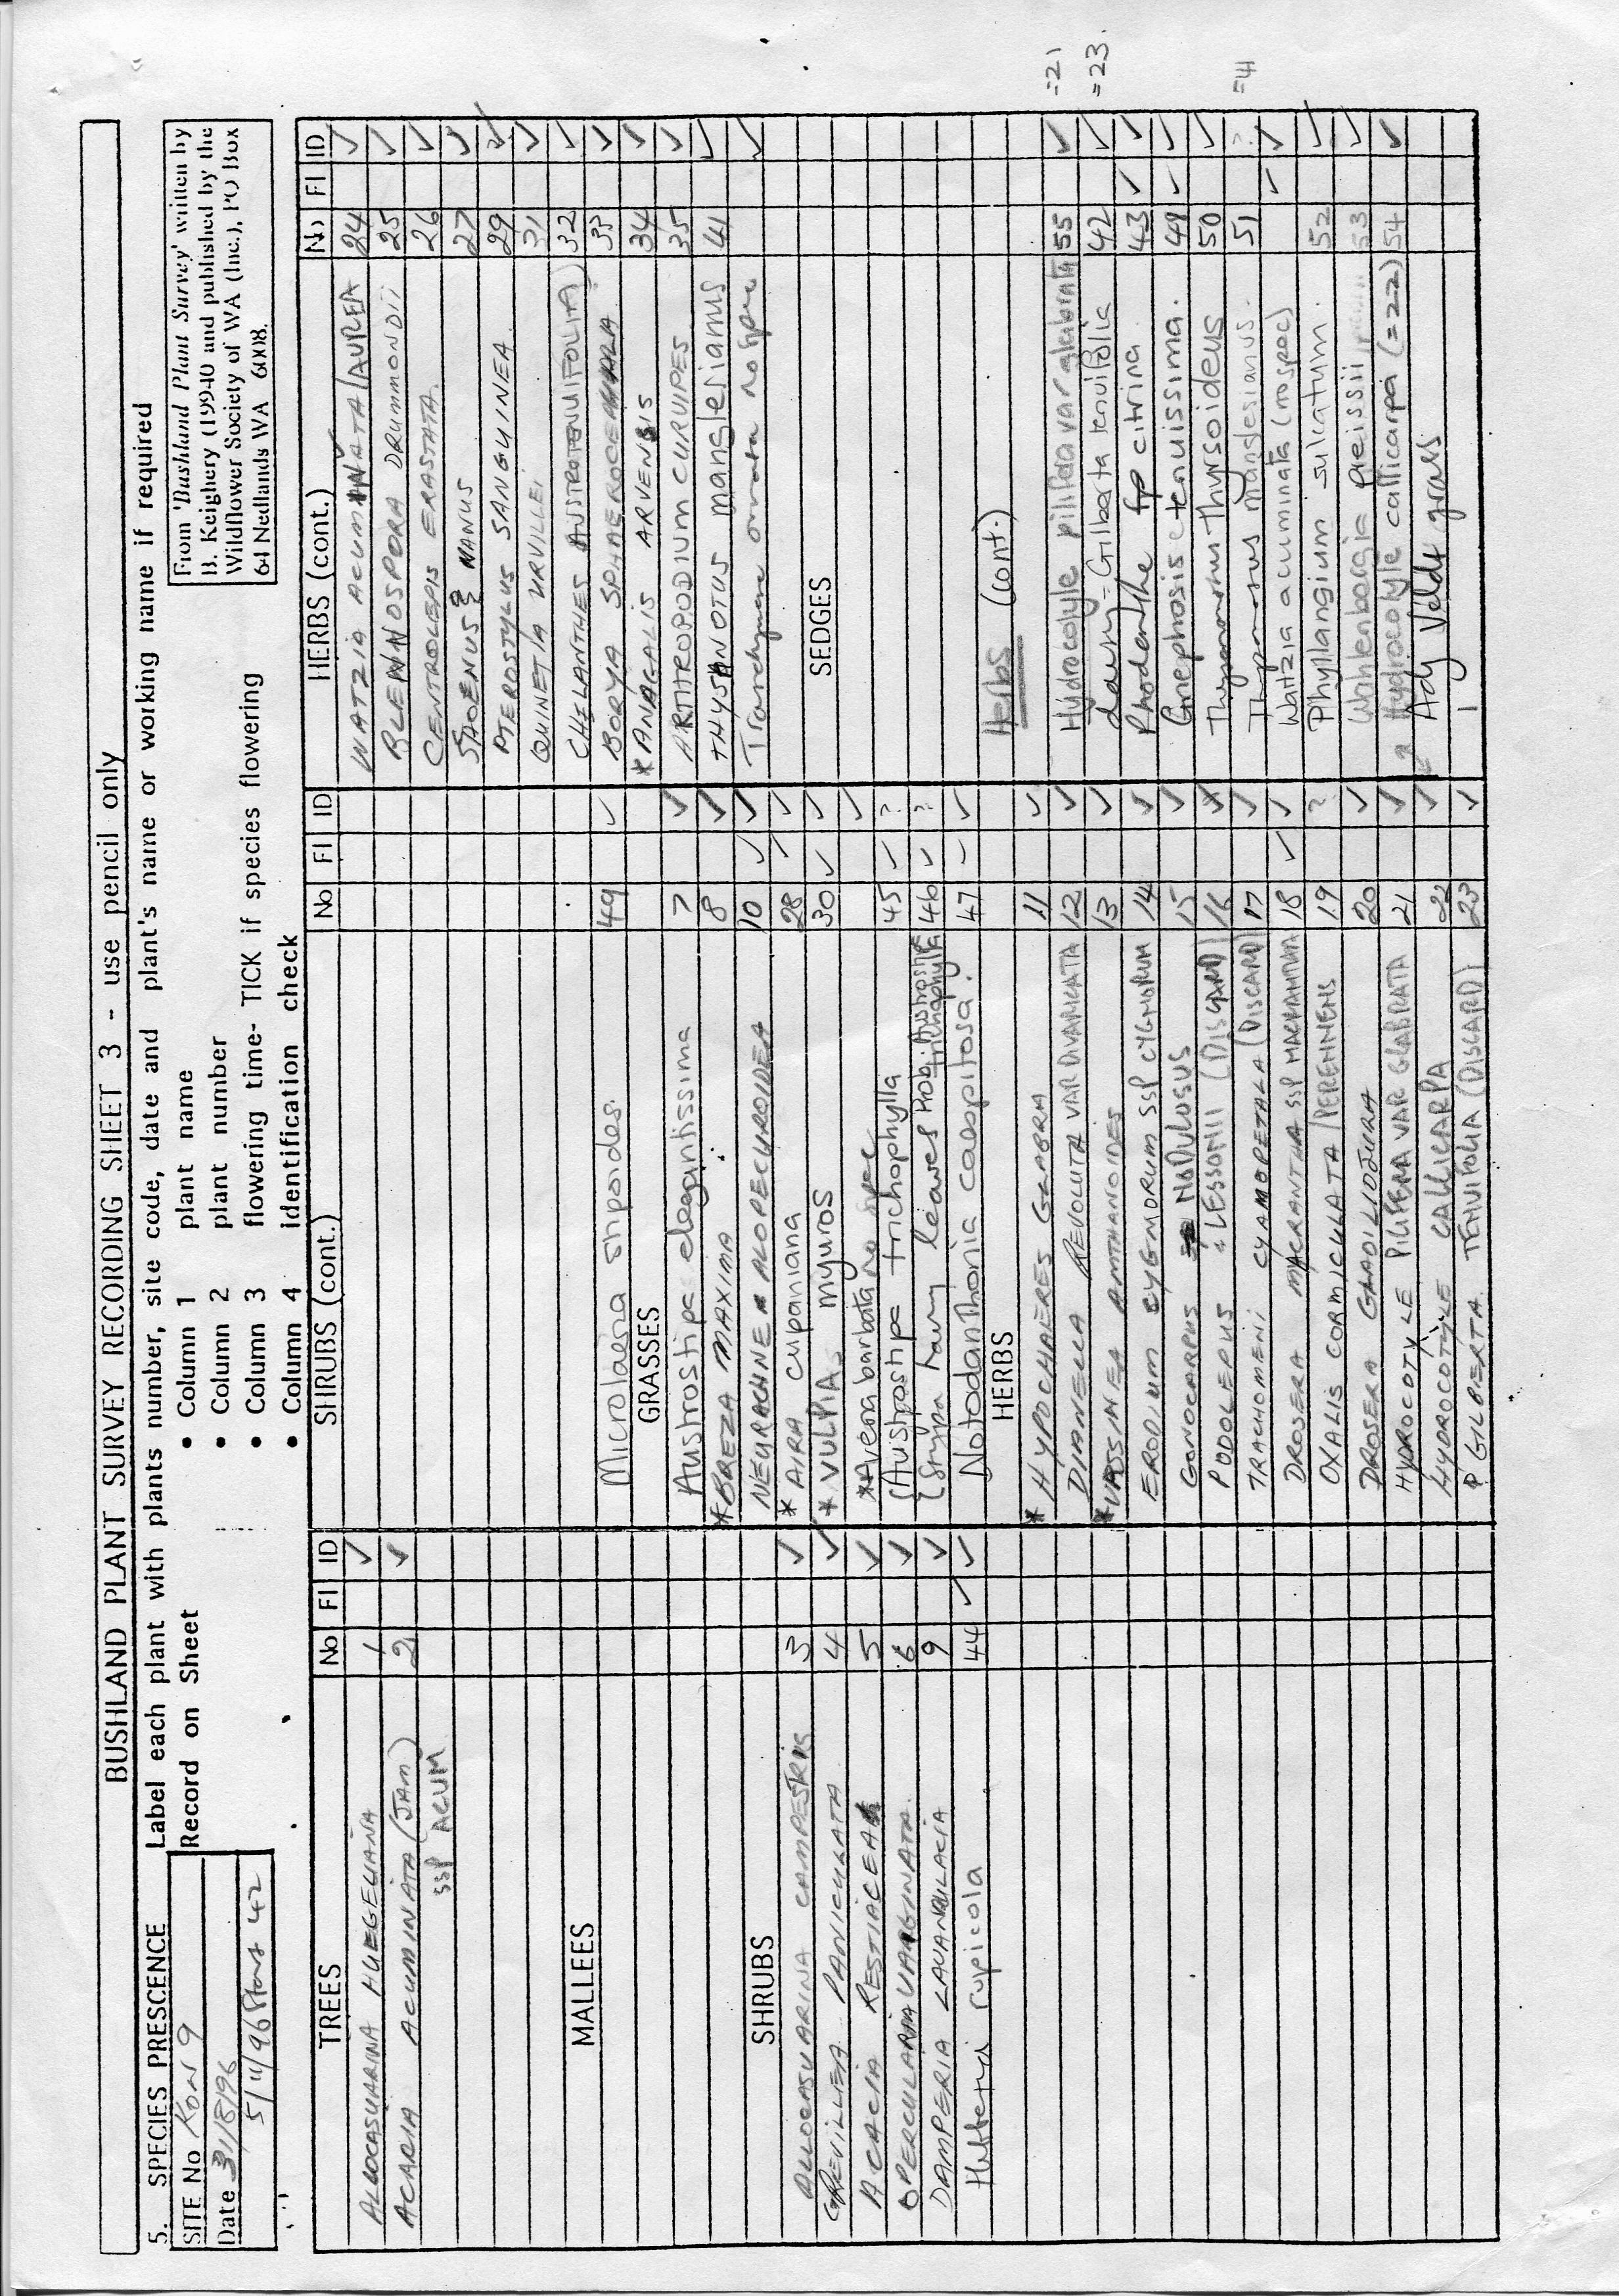 BUSHLAND PLANT SURVEY RECORDING SHEET 3 - use pencil only
5. SPECIES PRESCENCE
SITE No KON 9
Date 31/8/96
5/11/96 Start 42
Label each plant with plants number, site code, date and plant's name or working name if required
Record on Sheet
• Column 1 plant name
• Column 2 plant number
• Column 3 flowering time- TICK if species flowering
• Column 4 identification check
From 'Bushland Plant Survey' written by
B. Keighery (1994) and published by the
Wildflower Society of WA (Inc.), PO Box
64 Nedlands WA 6008.
TREES No Fl ID
ALLOCASUARINA HUEGELIANA 1 ✓
ACARIA ACUMINATA (JAM) 2 ✓
SSP ACUM
MALLEES
SHRUBS
ALLOCASUARINA CAMPESTRIS 3 ✓
GREVILLEA PANICULATA 4 ✓
ACACIA RESTIACEA 5 ✓
OPERCULARIA VAGINATA 6 ✓
DAMPERIA LAVANDULACIA 9 ✓
Hibbertia rupicola 44 ✓ ✓
SHRUBS (cont.) No Fl ID
Microlaena stipoides. 49 ✓
GRASSES
Austrostipa elegantissima 7 ✓
*BREZA MAXIMA 8 ✓
NEURACHNE ALOPECUROIDEA 10 ✓ ✓
* AIRA cupaniana 28 ✓ ✓
* VULPIA myuros 30 ✓ ✓
*Avena barbata no spec ✓
Austrostipa trichophylla 45 ✓ ?
Stypa hairy leaves Prob. Austrostipa trichophylla 46 ✓ ?
Notodanthonia caespitosa. 47 ✓ ✓
HERBS
* HYPOCHAERES GLABRA 11 ✓
DIANELLA REVOLUTA VAR DIVARICATA 12 ✓
*URSINEA ANTHANOIDES 13 ✓
ERODIUM CYGNORUM SSP CYGNORUM 14 ✓
GONOCARPUS NODULOSUS 15 ✓
PODOLEPUS LESSONII (DISCARD) 16
TRACHOMENI CYAMOPETALA (DISCARD) 17 ✓
DROSERA MACRANTHA SSP MACRANTHA 18 ✓ ✓
OXALIS CORMICULATA / PERENNENS 19 ?
DROSERA GLADILIOSURA 20 ✓
HYDROCOTYLE PILIFERA VAR GLABRATA 21 ✓
HYDROCOTYLE CALLICARPA 22 ✓
? GILBERTA TENUIFOLIA (DISCARD) 23 ✓
HERBS (cont.) No Fl ID
WATZIA ACUMINATA / AUREA 24 ✓
BLENNOSPORA DRUMMONDII 25 ✓
CENTROLEPIS ERASTATA 26 ✓
SHOENUS NANUS 27 ✓
PTEROSTYLUS SANGUINEA 29 ✓
QUINETIA URVILLEI 31 ✓
CHILANTHES AUSTROTENUIFOLIA) 32 ✓
BORYA SPHAEROCEPHALA 33 ✓
* ANAGALIS ARVENSIS 34 ✓
ARTHROPODIUM CURVIPES 35 ✓
THYSANOTUS manglesianus 41 ✓
Trachymene ornata no spec ✓
SEDGES
Herbs (cont.)
Hydrocotyle pilifera var glabrata 55 ✓ =21
daisy = Gilberta tenuifolia 42 ✓ =23.
Rhodanthe sp citrina 43 ✓ ✓
Gnephosis tenuissima. 49 ✓ ✓
Thyronomus thyrsoideus 50 ✓
Thysanosus manglesianus. 51 ? =41
Waitzia acuminata (no spec) ✓ ✓
Phyllangium sulcatum. 52 ✓
Wahlenbergia preissii 53 ✓
Hydrocotyle callicarpa (=22) 54 ✓
Ady Veldt grass